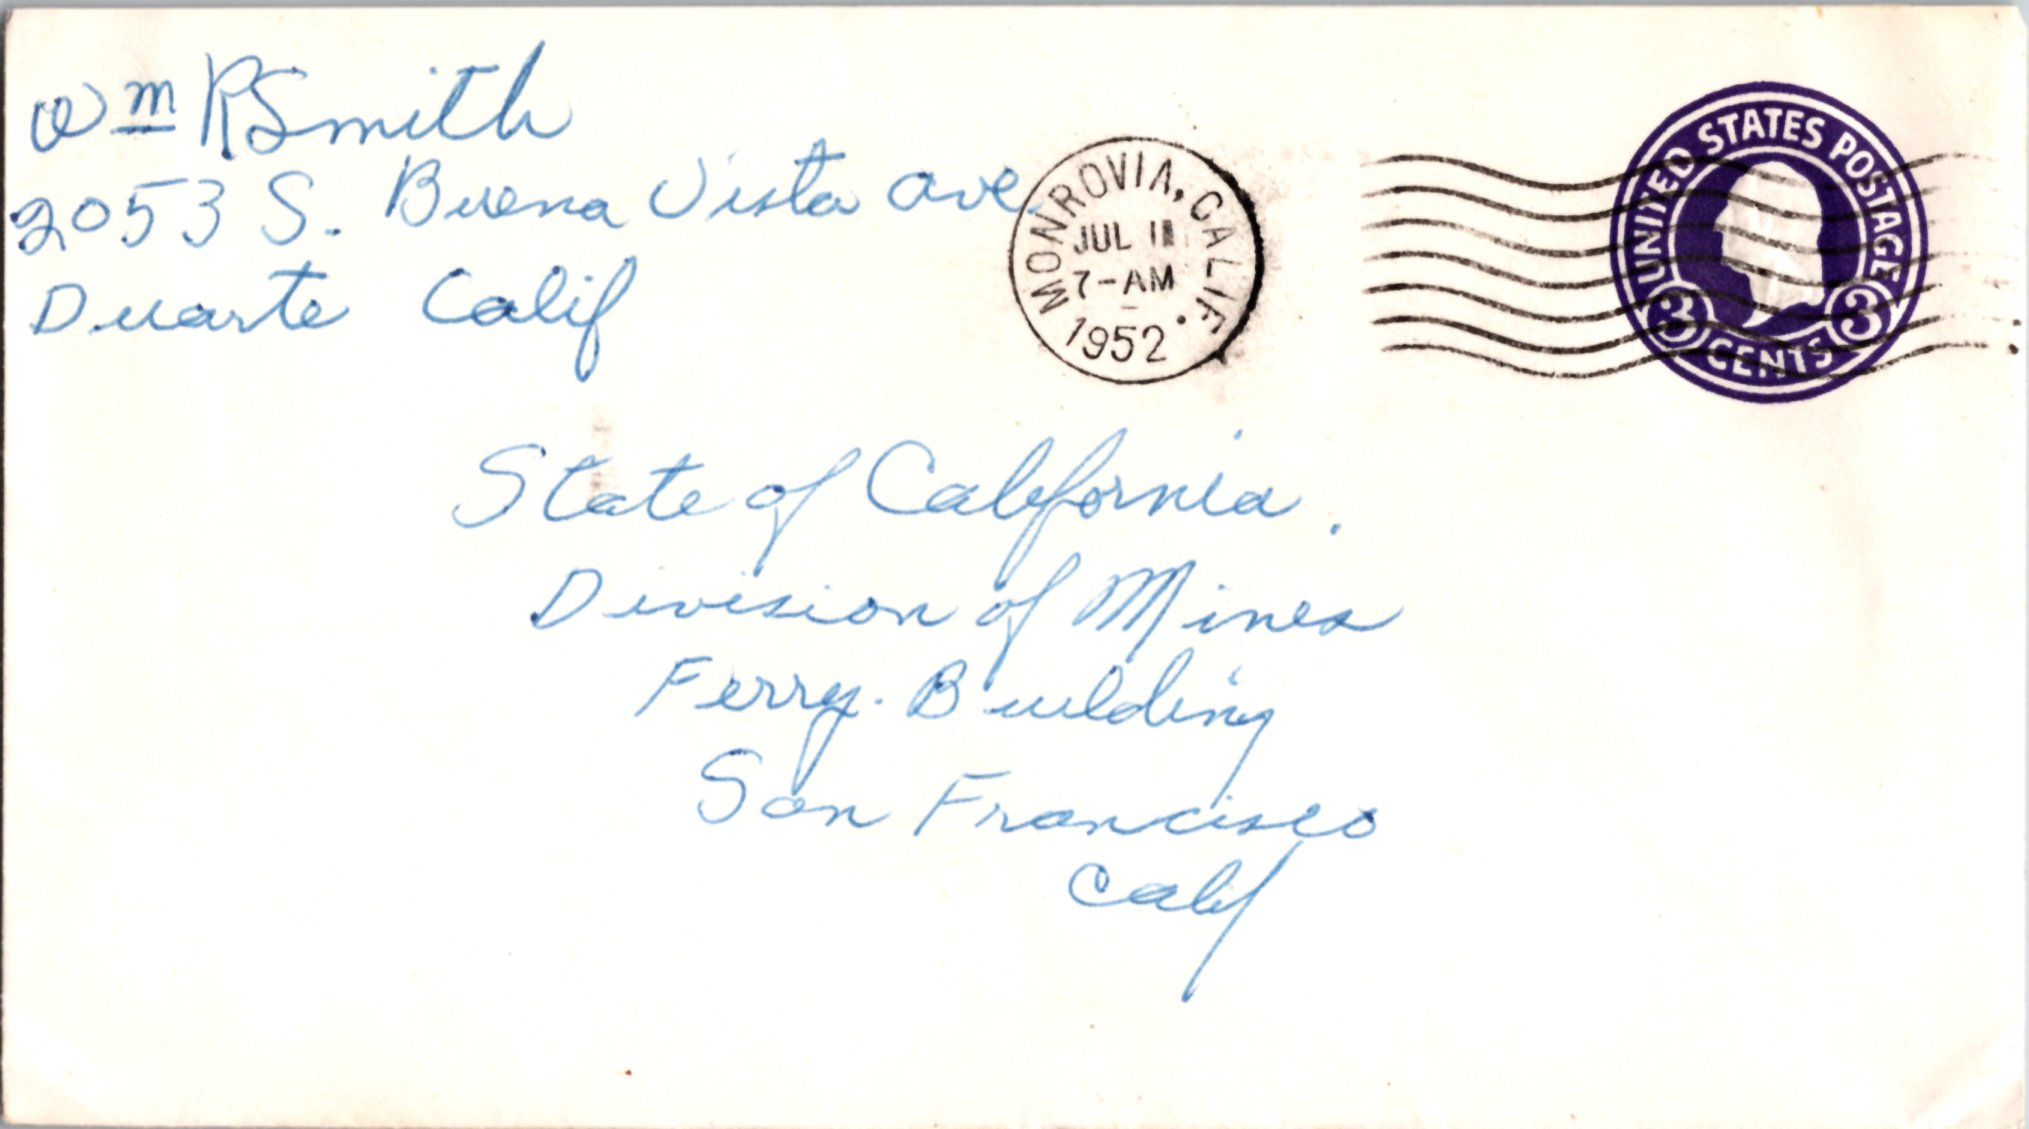 Wm R Smith
2053 S. Buena Vista ave
Duarte Calif
MONROVIA, CALIF.
JUL 11
7-AM
1952
UNITED STATES POSTAGE
3 CENTS 3
State of California.
Division of Mines
Ferry. Building
San Francisco
Calif